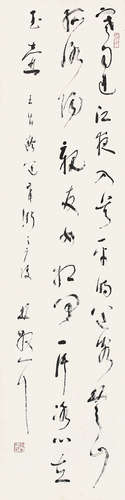 寒雨連江夜入吳平明送客楚山
孤洛陽親友如相問一片冰心在
玉壺 王昌齡送辛漸
林散